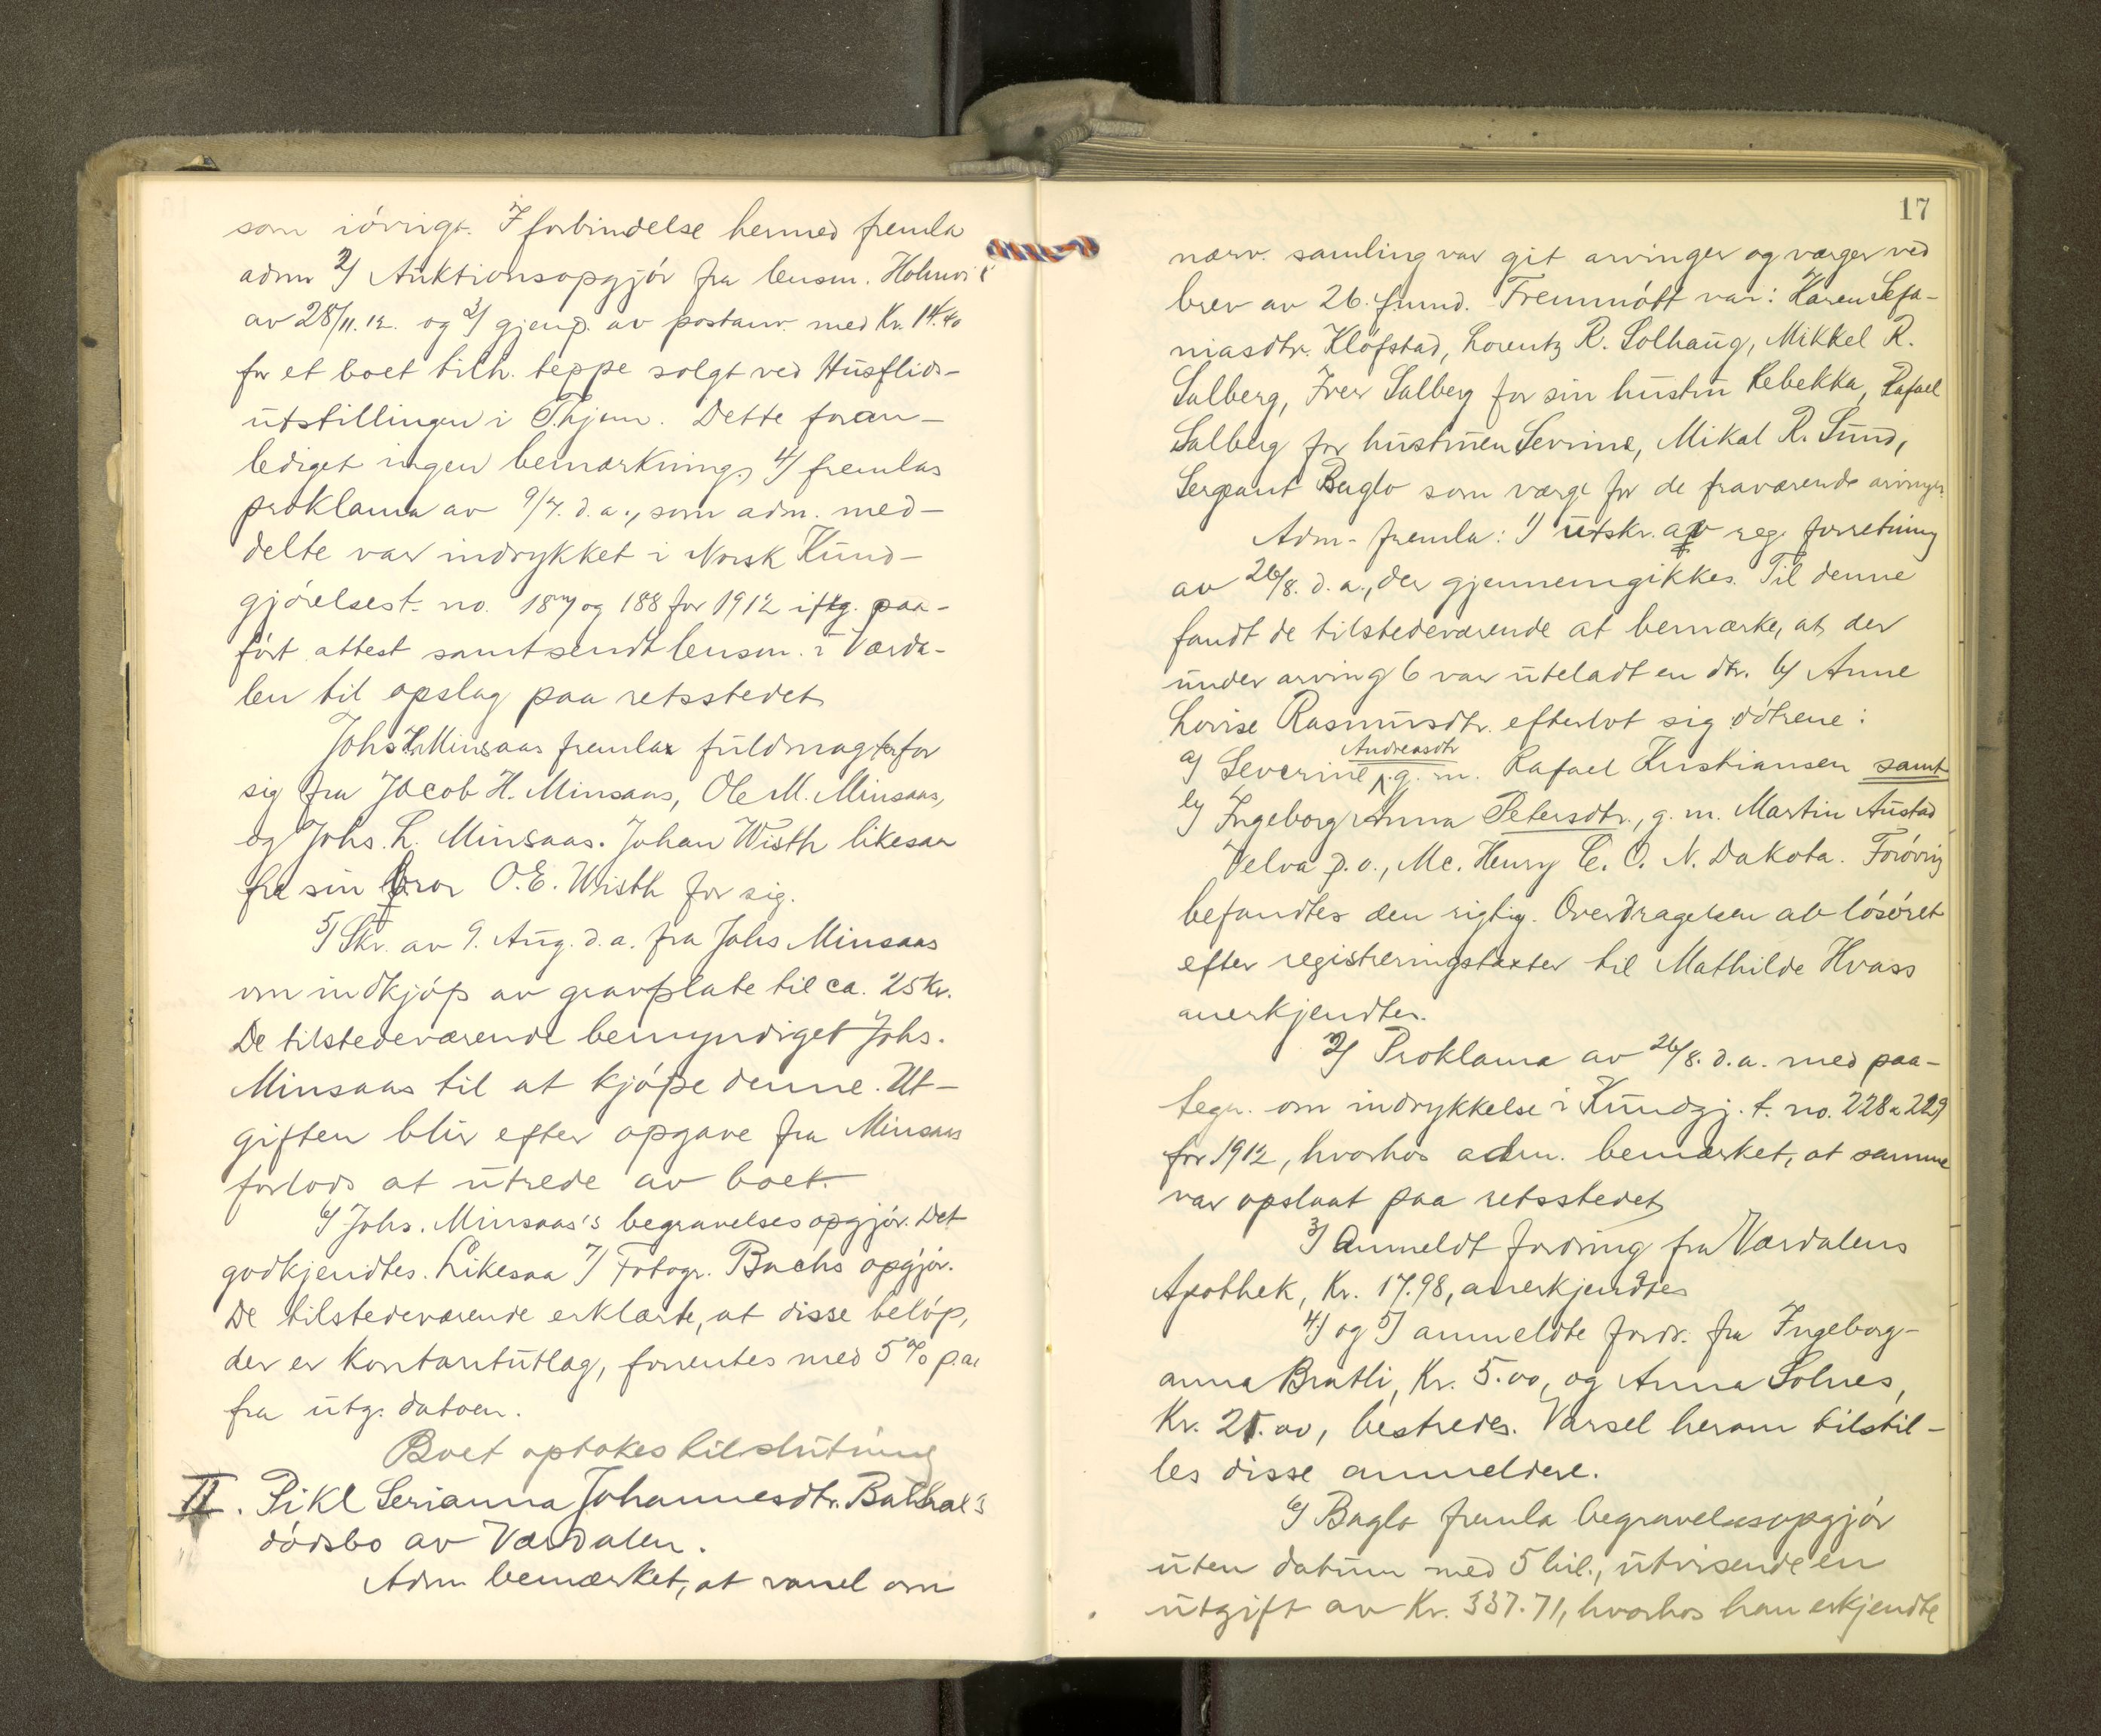 som iøvrigt. I forbindelse hermed fremla
adm 2/ Auktionsopgjór fra lensm. Holmvi
av 28/11. 12. og 3/ gjenp. av postanv. med Kr. 14.40
for et boet tilh. teppe solgt ved Húsflids-
útstillingen i Thjem. Dette foran-
lediget ingen bemærkning, 4/ fremlas
proklama av 9/7. d. a., som adm. med-
delte var indrykket i Norsk Kúnd-
gjørelsest. no. 187 og 188 for 1912 iflg. paa-
ført attest samt sendt lensm. i Værda-
len til opslag paa retsstedet
Johs H. Minsaas fremla fúldmagter for
sig fra Jacob H. Minsaas, Ole M. Minsaas,
og Johs. L. Minsaas. Johan Wisth likesaa
fra sin bror O. E. Wisth for sig.
5/ Skr. av 9. Aúg. d. a. fra Johs Minsaas
om indkjøp av gravplate til ca. 25 Kr.
De tilstedeværende bemyndiget Johs.
Minsaas til at kjøpe denne. Ut-
giften blir efter opgave fra Minsaas
forlods at útrede av boet.
6/ Johs. Minsaas's begravelsesopgjór. Det
godkjendtes. Likesaa 7/ Fotogr. Bachs opgjór.
De tilstedeværende erklærte, at disse beløp,
der er kontantútlæg, forrentes med 5% p. a.
fra útg. datoen.
Boet optokes til slútning
II. Pike Serianna Johannesdtr. Balhal's
dødsbo av Værdalen.
Adm bemærket, at varsel om
17
nærv. samling var git arvinger og værger ved
brev av 26. f. mnd. Fremmøtt var: Karen Sefa-
niasdtr. Kløfstad, Lorentz R. Solhaúg, Mikkel R.
Salberg, Iver Salberg for sin hústrú Rebekka, Rafael
Salberg for hústrúen Sevrine, Mikal R. Súnd,
Sergeant Baglo som værge for de fraværende arvinger.
Adm- fremla: 1) útskr. av reg. forretning
av 26/8. d. a., der gjennemgikkes. Til denne
fandt de tilstedeværende at bemærke, at der
únder arving 6 var úteladt en dtr. b/ Anne
Lovise Rasmúsdtr. efterlot sig døtrene:
a/ Severine Andreasdtr g. m. Rafael Kristiansen samt
b/ Ingeborg Anna Petersdtr., g. m. Martin Aústad
Velva p. o., Mc. Henry C. O. N. Dakota. Forøvrig
befandtes den rigtig. Overdragelsen av løsøret
efter registreringstakster til Mathilde Hvass
anerkjendtes.
2/ Proklama av 26/8. d. a. med paa-
tegn. om indrykkelse i Kúndgj. t. no. 228 & 229
for 1912, hvorhos adm. bemærket, at samme
var opslaat paa retsstedet
3/ Anmeldt fordring fra Værdalens
Apothek, Kr. 17.98, anerkjendtes
4/ og 5/ anmeldte fordr. fra Ingeborg-
anna Bratli, Kr. 5.00, og Anna Solnes,
Kr. 21.00, bestredes. Varsel herom tilstil-
les disse anmeldere.
6/ Baglo fremla begravelsesopgjór
úten datúm med 5 bil., útvisende en
útgift av Kr. 337.71, hvorhos han erkjendte